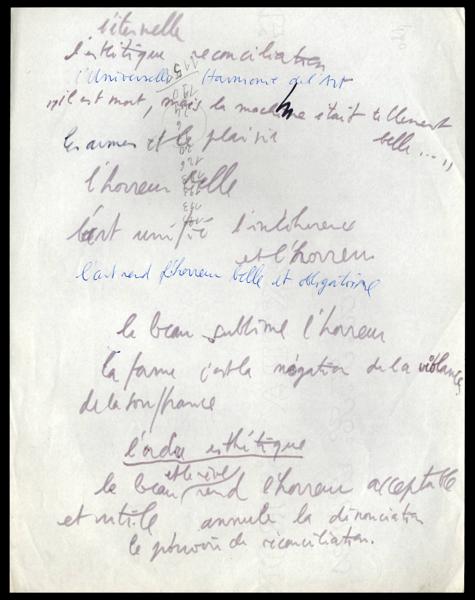 l'éternelle
l'esthétique reconciliation
l'Universelle Harmonie de l'Art
"il est mort, mais la machine était tellement
belle..."
les armes et le plaisir
l'horreur belle
l'art unifie l'incohérence
et l'horreur
l'art rend l'horreur belle et obligatoire
le beau sublime l'horreur
la forme c'est la négation de la violence
de la souffrance
l'ordre esthétique
et le rêve
le beau rend l'horreur acceptable
et utile annule la dénonciation
le pouvoir de réconciliation.